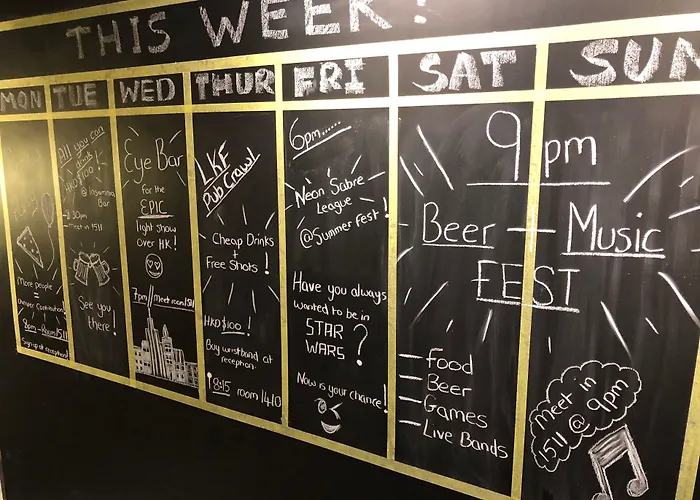 THIS WEEK!
MON
TUE
WED
THUR
FRI
SAT
SUN
More people
=
cheaper contribution!
8pm - Room 1511
Sign up at reception!
All you can
drink
HKD$100!
@ Insomnia
Bar
- 8:30pm
- Meet in 1511
See you
there!
Eye Bar
For the
EPIC
light show
over HK!
7pm // Meet room 1511
LKF
Pub Crawl
Cheap Drinks
+
Free Shots!
HKD$100!
Buy wristband at
reception.
8:15 room 1410
6pm......
Neon Sabre
League
@Summer Fest!
Have you always
wanted to be in
STAR
WARS?
Now is your chance!
9pm
Beer - Music
FEST
- Food
- Beer
- Games
- Live Bands
meet in
1511 @ 9pm